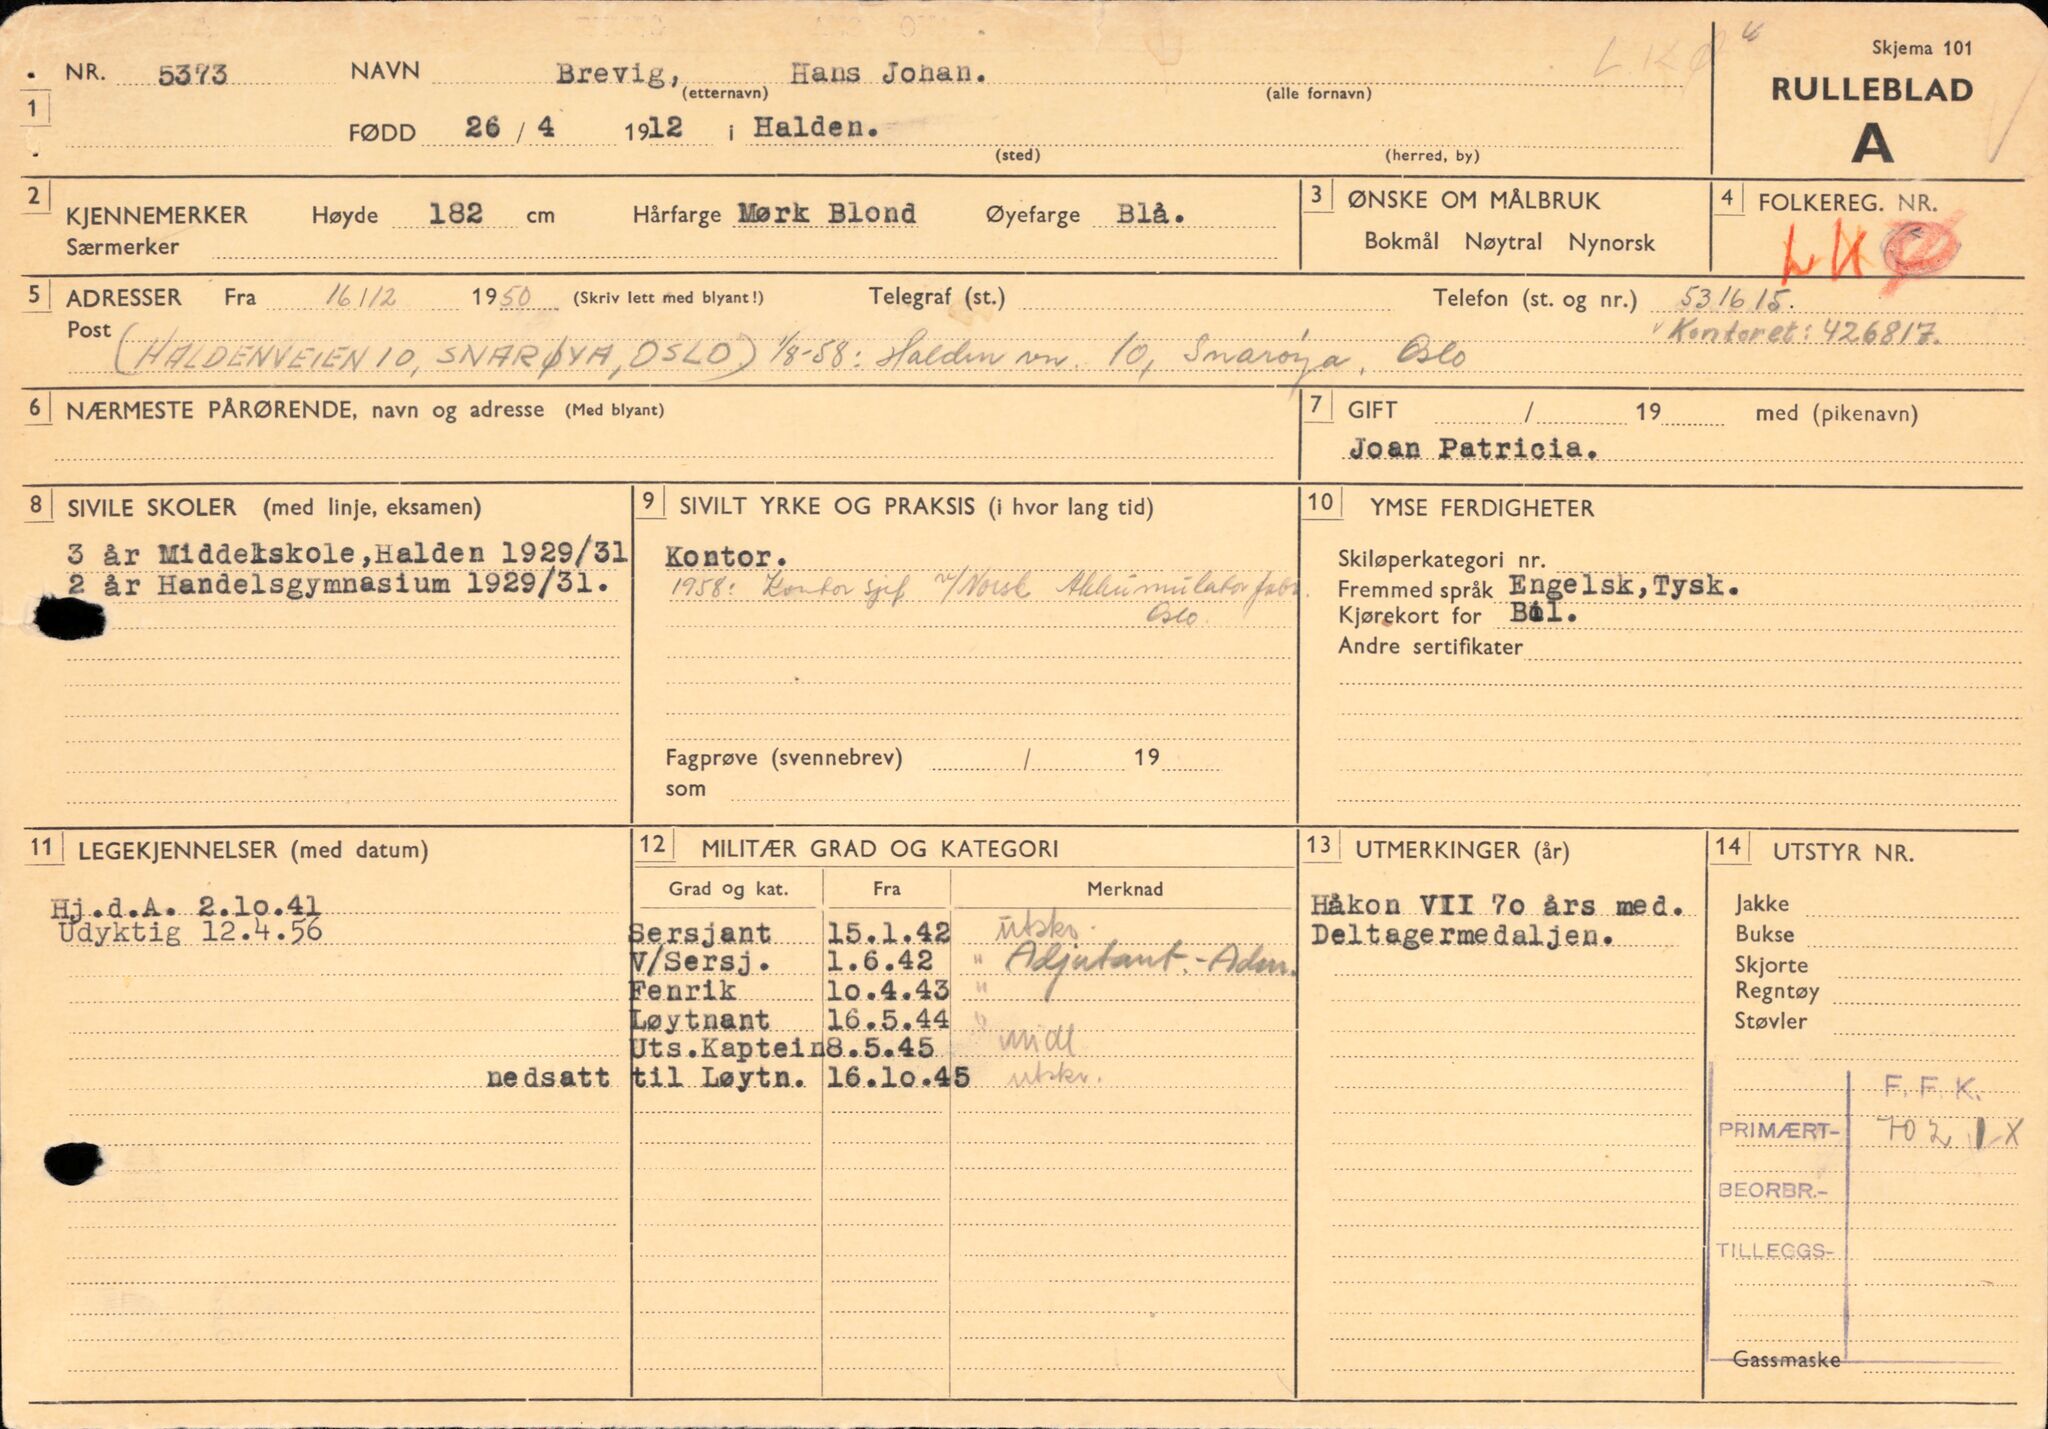 LKØ
Skjema 101
NR. 5373 NAVN Brevig, Hans Johan.
(etternavn) (alle fornavn)
RULLEBLAD
A
1
FØDD 26 / 4 1912 i Halden.
(sted) (herred, by)
2 KJENNEMERKER Høyde 182 cm Hårfarge Mørk Blond Øyefarge Blå.
Særmerker
3 ØNSKE OM MÅLBRUK
Bokmål Nøytral Nynorsk
4 FOLKEREG. NR.
LKØ
5 ADRESSER Fra 16/12 1950 (Skriv lett med blyant!) Telegraf (st.) Telefon (st. og nr.) 531615.
Kontoret: 426817.
Post (HALDENVEIEN 10, SNARØYA, OSLO) 1/8-58: Halden vn. 10, Snarøya, Oslo
6 NÆRMESTE PÅRØRENDE, navn og adresse (Med blyant)
7 GIFT / 19 med (pikenavn)
Joan Patricia.
8 SIVILE SKOLER (med linje, eksamen)
3 år Middelskole, Halden 1929/31
2 år Handelsgymnasium 1929/31.
9 SIVILT YRKE OG PRAKSIS (i hvor lang tid)
Kontor.
1958: Kontorsjef v/Norsk Akkumulator fabr.
Oslo.
Fagprøve (svennebrev) / 19
som
10 YMSE FERDIGHETER
Skiløperkategori nr.
Fremmed språk Engelsk, Tysk.
Kjørekort for Bil.
Andre sertifikater
11 LEGEKJENNELSER (med datum)
Hj.d.A. 2.10.41
Udyktig 12.4.56
12 MILITÆR GRAD OG KATEGORI
Grad og kat. Fra Merknad
Sersjant 15.1.42 utskr.
V/Sersj. 1.6.42 " Adjutant.-Adm.
Fenrik 10.4.43 "
Løytnant 16.5.44 "
Uts.Kaptein 8.5.45 midl
nedsatt til Løytn. 16.10.45 utskr.
13 UTMERKINGER (år)
Håkon VII 70 års med.
Deltagermedaljen.
14 UTSTYR NR.
Jakke
Bukse
Skjorte
Regntøy
Støvler
F. F. K.
PRIMÆRT- 702 X
BEORBR.-
TILLEGGS-
Gassmaske